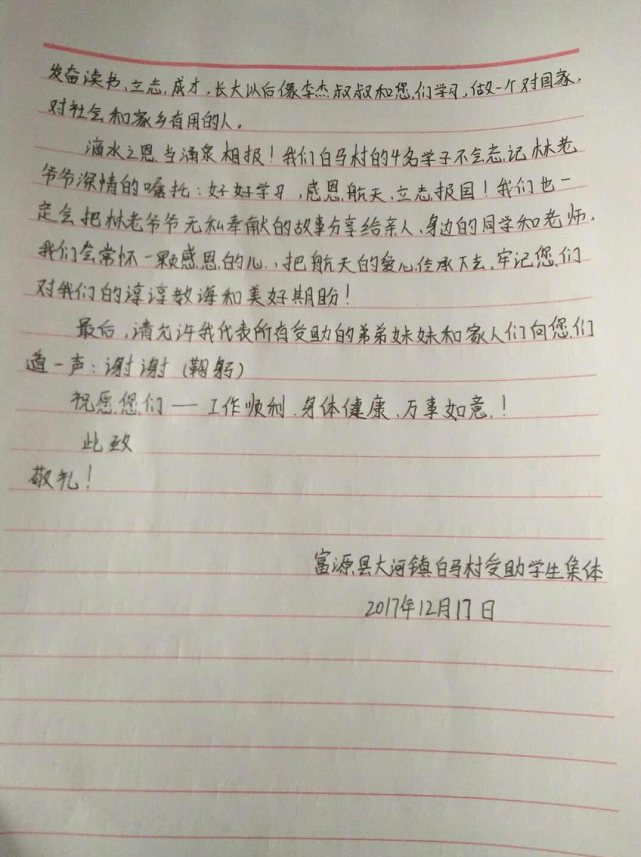 发奋读书,立志,成才,长大以后像李杰叔叔和您们学习,做一个对国家,
对社会和家乡有用的人。
滴水之恩,当涌泉相报!我们白马村的4名学子不会忘记林老
爷爷深情的嘱托:好好学习,感恩航天,立志报国!我们也一
定会把林老爷爷无私奉献的故事分享给亲人、身边的同学和老师,
我们会常怀一颗感恩的心,把航天的爱心传承下去,牢记您们
对我们的谆谆教诲和美好期盼!
最后,请允许我代表所有受助的弟弟妹妹和家人们向您们
道一声:谢谢(鞠躬)
祝愿您们——工作顺利、身体健康、万事如意!
此致
敬礼!
富源县大河镇白马村受助学生集体
2017年12月17日